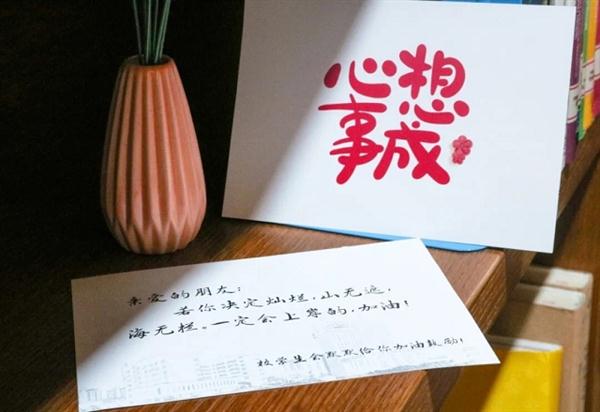 心想
事成
亲爱的朋友：
若你决定灿烂，山无遮，
海无栏。一定会上岸的，加油！
校学生会默默给你加油鼓励！